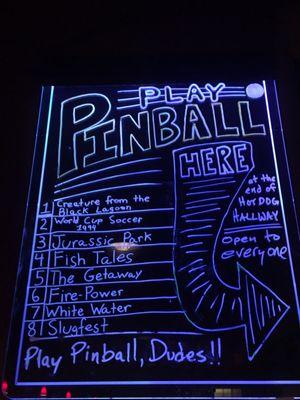 PLAY
PINBALL
HERE
at the
end of
HOT DOG
HALLWAY
open to
everyone
1 Creature from the
Black Lagoon
2 World Cup Soccer
1994
3 Jurassic Park
4 Fish Tales
5 The Getaway
6 Fire-Power
7 White Water
8 Slugfest
Play Pinball, Dudes!!